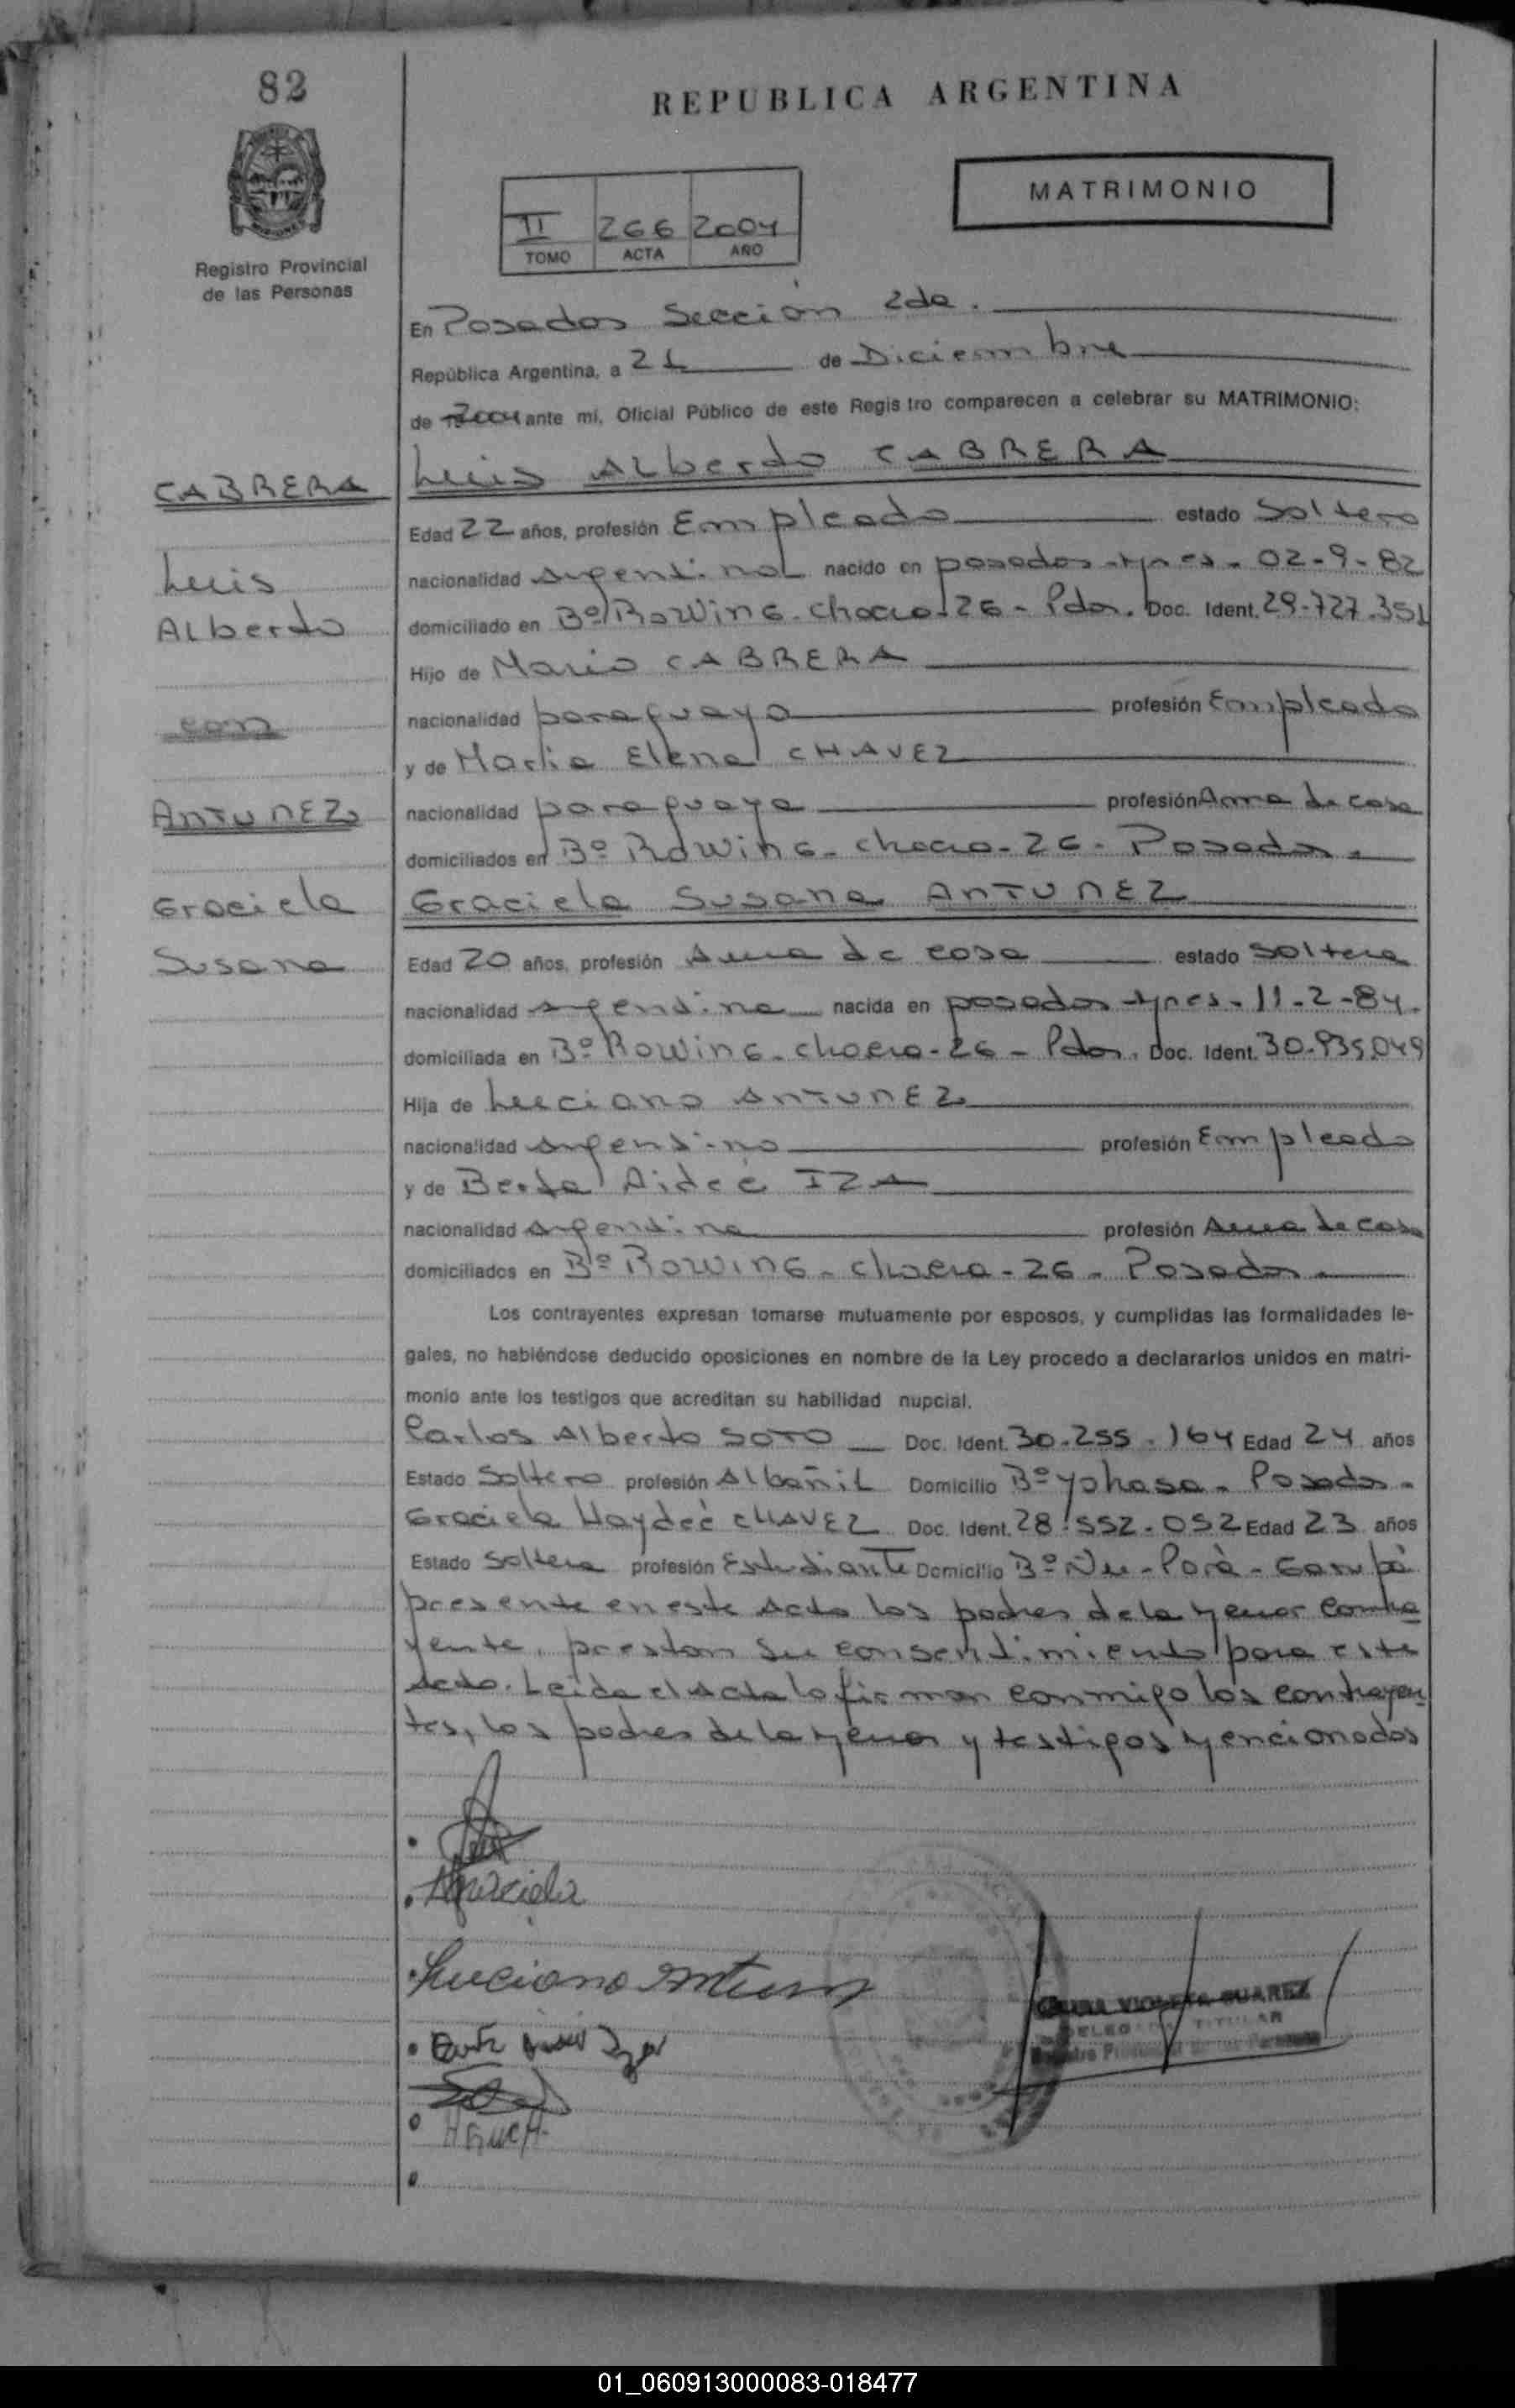 82
REPUBLICA ARGENTINA
MATRIMONIO
II 266 2004
TOMO ACTA AÑO
Registro Provincial
de las Personas
En Posadas Sección 2da.
República Argentina, a 21 de Diciembre
de 2004 ante mí, Oficial Público de este Registro comparecen a celebrar su MATRIMONIO:
CABRERA
Luis Alberto CABRERA
Edad 22 años, profesión Empleado estado Soltero
Luis
nacionalidad argentina nacido en posadas - Mnes - 02-9-82
Alberto
domiciliado en Bº Rowing - chacra - 26 - Pdas. Doc. Ident. 29.727.351
Hijo de Mario CABRERA
con
nacionalidad paraguayo profesión Empleado
y de María Elena CHAVEZ
ANTUNEZ
nacionalidad paraguaya profesión Ama de casa
domiciliados en Bº Rowing - chacra - 26 - Posadas.
Graciela
Graciela Susana ANTUNEZ
Susana
Edad 20 años, profesión Ama de casa estado soltera
nacionalidad argentina nacida en posadas - Mnes - 11-2-84.
domiciliada en Bº Rowing - chacra - 26 - Pdas. Doc. Ident. 30.935.049
Hija de Luciano ANTUNEZ
nacionalidad argentino profesión Empleado
y de Berta Aideé IZA
nacionalidad argentina profesión Ama de casa
domiciliados en Bº Rowing - chacra - 26 - Posadas.
Los contrayentes expresan tomarse mutuamente por esposos, y cumplidas las formalidades le-
gales, no habiéndose deducido oposiciones en nombre de la Ley procedo a declararlos unidos en matri-
monio ante los testigos que acreditan su habilidad nupcial.
Carlos Alberto SOTO Doc. Ident. 30.255.164 Edad 24 años
Estado Soltero profesión Albañil Domicilio Bº Yohasa - Posadas -
Graciela Haydeé CHAVEZ Doc. Ident. 28.552.052 Edad 23 años
Estado Soltera profesión Estudiante Domicilio Bº Ñu - Porá - Garupá
presente en este Acto los padres de la Menor contra
yente, prestan su consentimiento para este
Acto. Leída el Acta lo firman conmigo los contrayen
tes, los padres de la Menor y testigos Mencionados
Graciela
Luciano Antunez
VIOLETA SUAREZ
DELEGADA TITULAR
Registro Provincial de las Personas
01_060913000083-018477